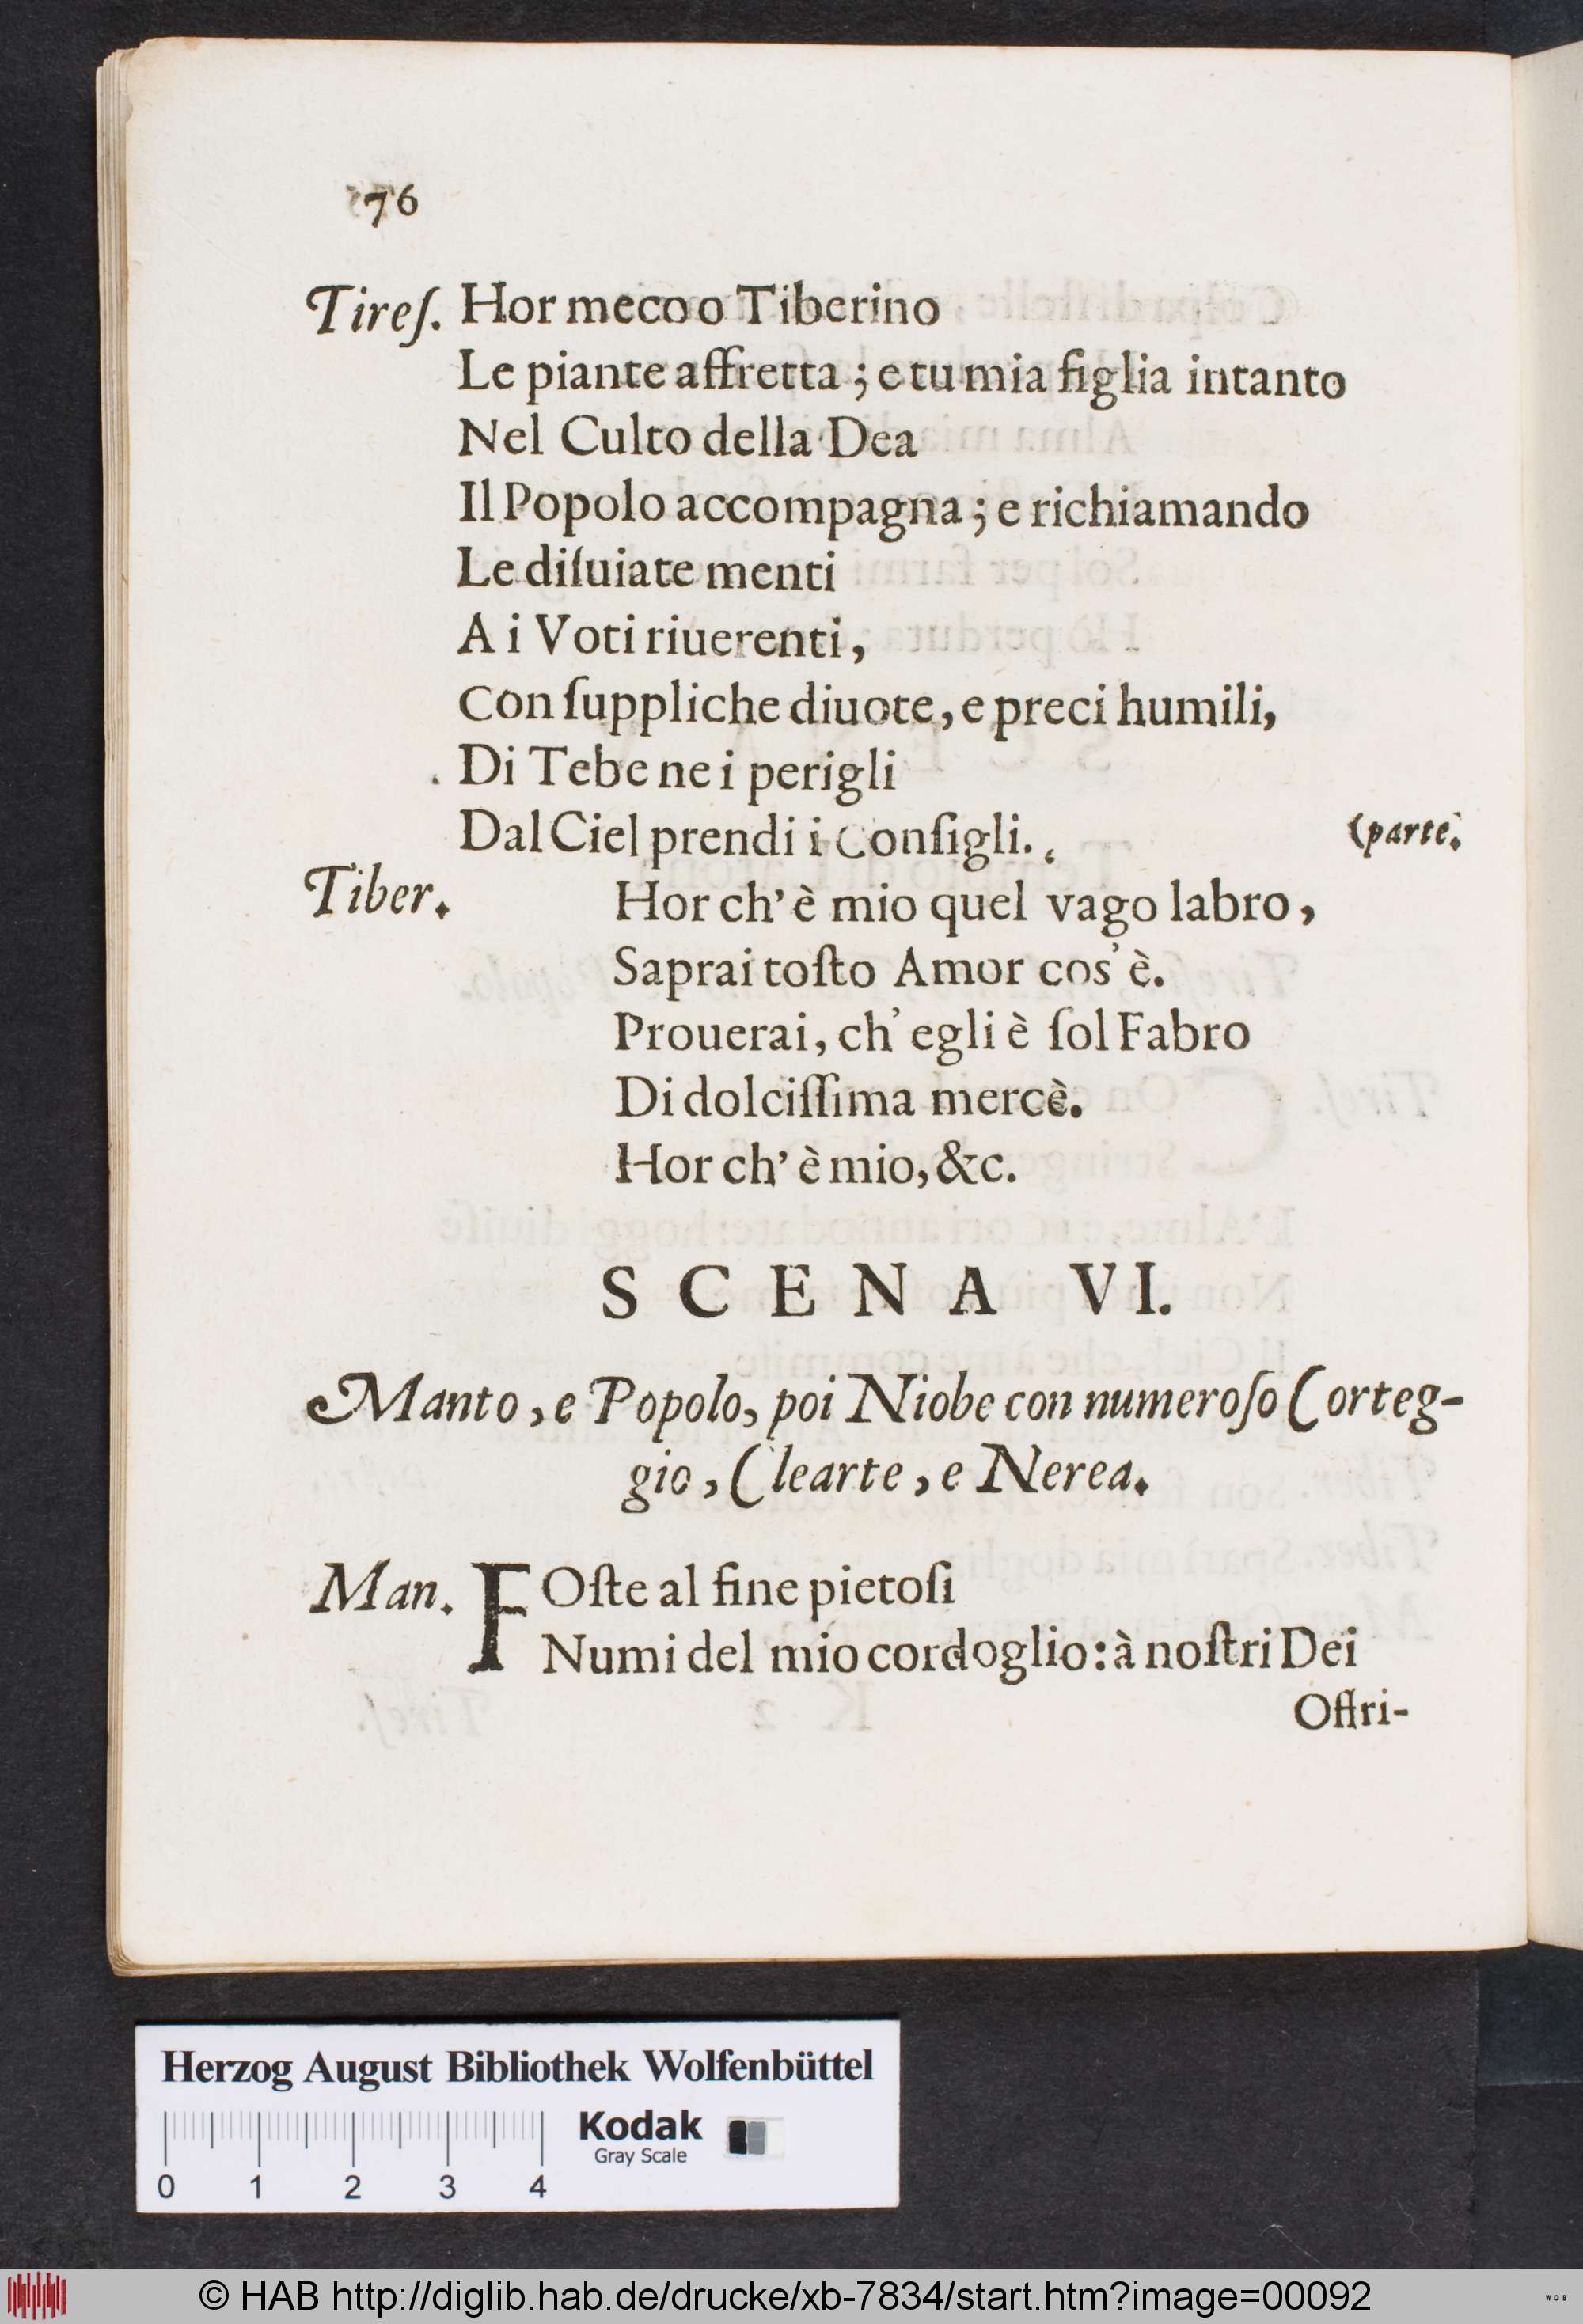 76
Tireſ. Hor meco o Tiberino
Le piante affretta ; e tu mia figlia intanto
Nel Culto della Dea
Il Popolo accompagna ; e richiamando
Le diſuiate menti
A i Voti riuerenti ,
Con ſuppliche diuote, e preci humili,
Di Tebe ne i perigli
Dal Ciel prendi i Conſigli. (parte.
Tiber. Hor ch' è mio quel vago labro ,
Saprai toſto Amor cos' è.
Prouerai, ch' egli è ſol Fabro
Di dolciſſima mercè.
Hor ch' è mio, &c.
SCENA VI.
Manto , e Popolo, poi Niobe con numeroſo Corteg-
gio , Clearte , e Nerea.
Man. FOſte al fine pietoſi
Numi del mio cordoglio: à noſtri Dei
Offri-
Herzog August Bibliothek Wolfenbüttel
Kodak
Gray Scale
0 1 2 3 4
© HAB http://diglib.hab.de/drucke/xb-7834/start.htm?image=00092
WDB